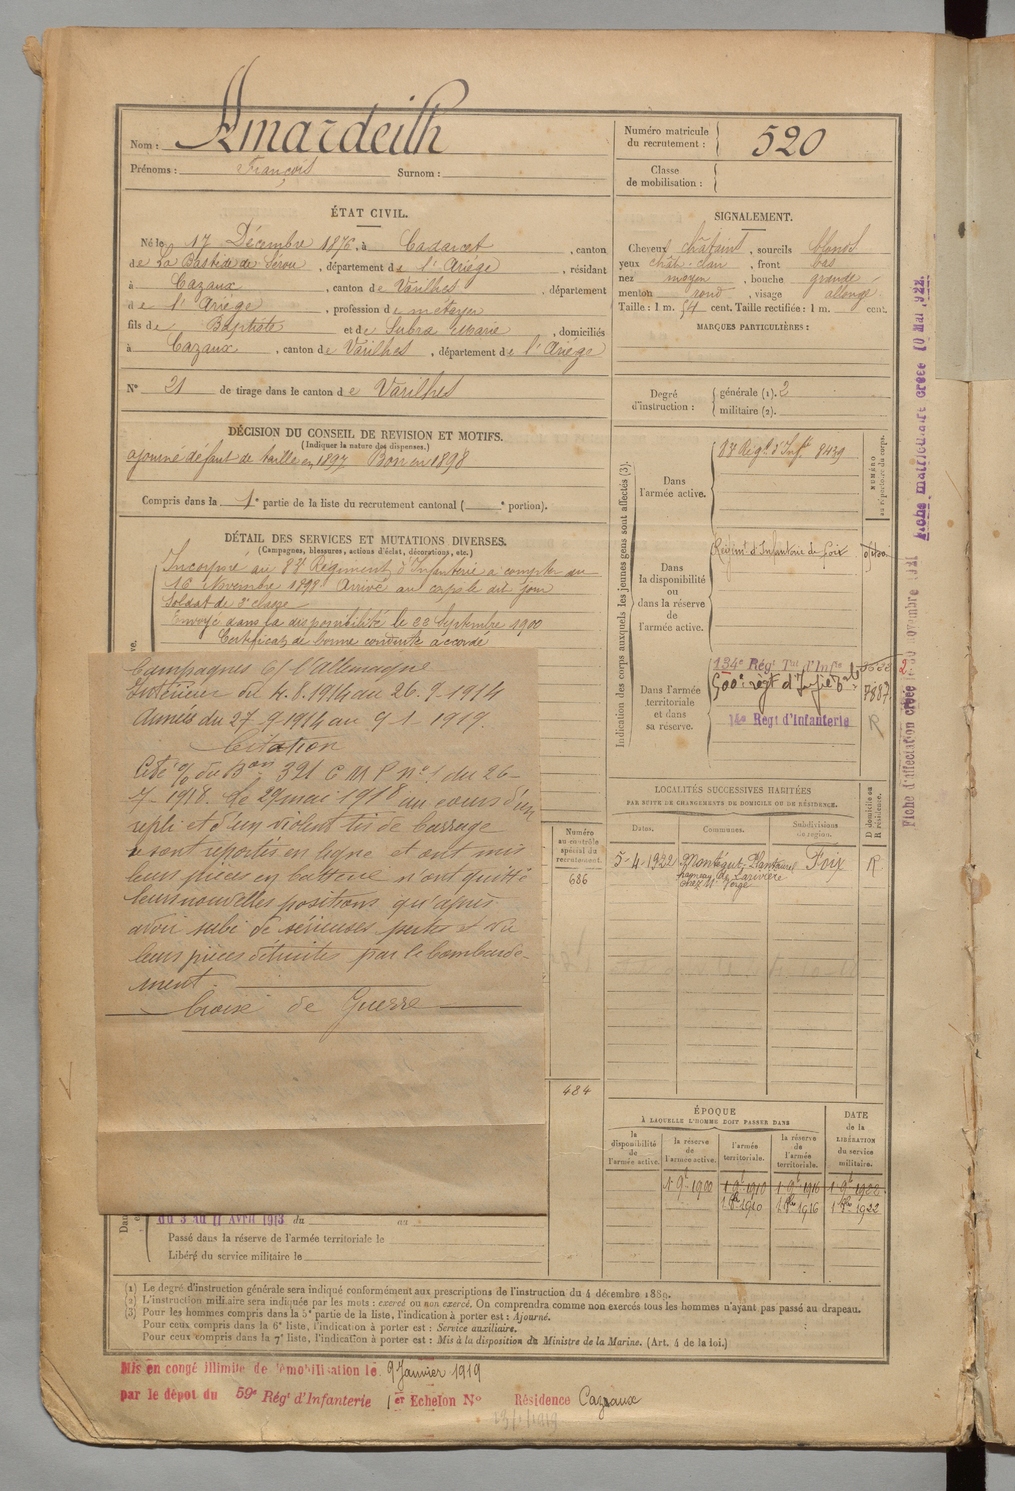 Nom : Amardeilh
Prénoms : François Surnom :
Numéro matricule du recrutement : 520
Classe de mobilisation :
ÉTAT CIVIL.
Né le 17 Décembre 1876, à Cadarcet , canton
de La Bastide de Sérou , département de l'Ariège , résidant
à Cazaux , canton de Varilhes , département
de l'Ariège , profession de métayer
fils de Baptiste et de Subra Marie , domiciliés
à Cazaux , canton de Varilhes , département de l'Ariège
N° 21 de tirage dans le canton de Varilhes
SIGNALEMENT.
Cheveux châtains , sourcils blonds
yeux chât-clair , front bas
nez moyen , bouche grande
menton rond , visage allongé
Taille : 1 m. 54 cent. Taille rectifiée : 1 m. cent.
MARQUES PARTICULIÈRES :
Degré d'instruction : générale (1). 2
militaire (2).
DÉCISION DU CONSEIL DE REVISION ET MOTIFS.
(Indiquer la nature des dispenses.)
ajourné défaut de taille en 1897 Bon en 1898
Compris dans la 1e partie de la liste du recrutement cantonal ( e portion).
DÉTAIL DES SERVICES ET MUTATIONS DIVERSES.
(Campagnes, blessures, actions d'éclat, décorations, etc.)
Incorporé au 83e Régiment d'Infanterie à compter du
16 Novembre 1898 Arrivé au corps le dit jour
Soldat de 2e classe
Envoyé dans la disponibilité le 22 Septembre 1900
Certificat de bonne conduite accordé
Campagnes C/ l'Allemagne
Intérieur du 4.8.1914 au 26-9-1914
Armées du 27-9-1914 au 9-1-1919.
Citation
Cité o/ du Bon 321 C M P n°1 du 26-
7-1918. Le 29 mai 1918 au cours d'un
repli et d'un violent tir de barrage
se sont reportés en ligne et ont mis
leurs pièces en batterie n'ont quitté
leurs nouvelles positions qu'après
avoir subi de sérieuses pertes et vu
leurs pièces détruites par le bombarde-
ment.
Croix de Guerre
Indication des corps auxquels les jeunes gens sont affectés (3).
NUMÉRO au répertoire du corps.
Dans l'armée active. 83e Régt d'Inf. 8439
Dans la disponibilité ou dans la réserve de l'armée active. Régim't d'Infanterie de Foix
Dans l'armée territoriale et dans sa réserve. 134e Régt Tal d'Infie
500e régt d'Infie 7887
14e Régt d'Infanterie R
LOCALITÉS SUCCESSIVES HABITÉES
PAR SUITE DE CHANGEMENTS DE DOMICILE OU DE RÉSIDENCE.
Dates. Communes. Subdivisions de région. D domicile ou R résidence.
5-4-1922 Montégut-Plantaurel Foix R
hameau de Larivière
Numéro au contrôle spécial du recrutement.
686
484
ÉPOQUE
À LAQUELLE L'HOMME DOIT PASSER DANS
la disponibilité de l'armée active. la réserve de l'armée active. l'armée territoriale. la réserve de l'armée territoriale. DATE de la LIBÉRATION du service militaire.
1 9bre 1900 1 9bre 1910 1 9bre 1916 1 9bre 1922
1 8bre 1910 1 8bre 1916 1 8bre 1922
du 3 au 11 Avril 1913 du au
Passé dans la réserve de l'armée territoriale le
Libéré du service militaire le
(1) Le degré d'instruction générale sera indiqué conformément aux prescriptions de l'instruction du 4 décembre 1889.
(2) L'instruction militaire sera indiquée par les mots : exercé ou non exercé. On comprendra comme non exercés tous les hommes n'ayant pas passé au drapeau.
(3) Pour les hommes compris dans la 5e partie de la liste, l'indication à porter est : Ajourné.
Pour ceux compris dans la 6e liste, l'indication à porter est : Service auxiliaire.
Pour ceux compris dans la 7e liste, l'indication à porter est : Mis à la disposition du Ministre de la Marine. (Art. 4 de la loi.)
Mis en congé illimité de démobilisation le 9 Janvier 1919
par le dépot du 59e Régt d'Infanterie 1er Echelon N° Résidence Cazaux
Fiche d'affectation créée le 30 novembre 1921
Fiche matriculaire créée 10 Mai 1922.